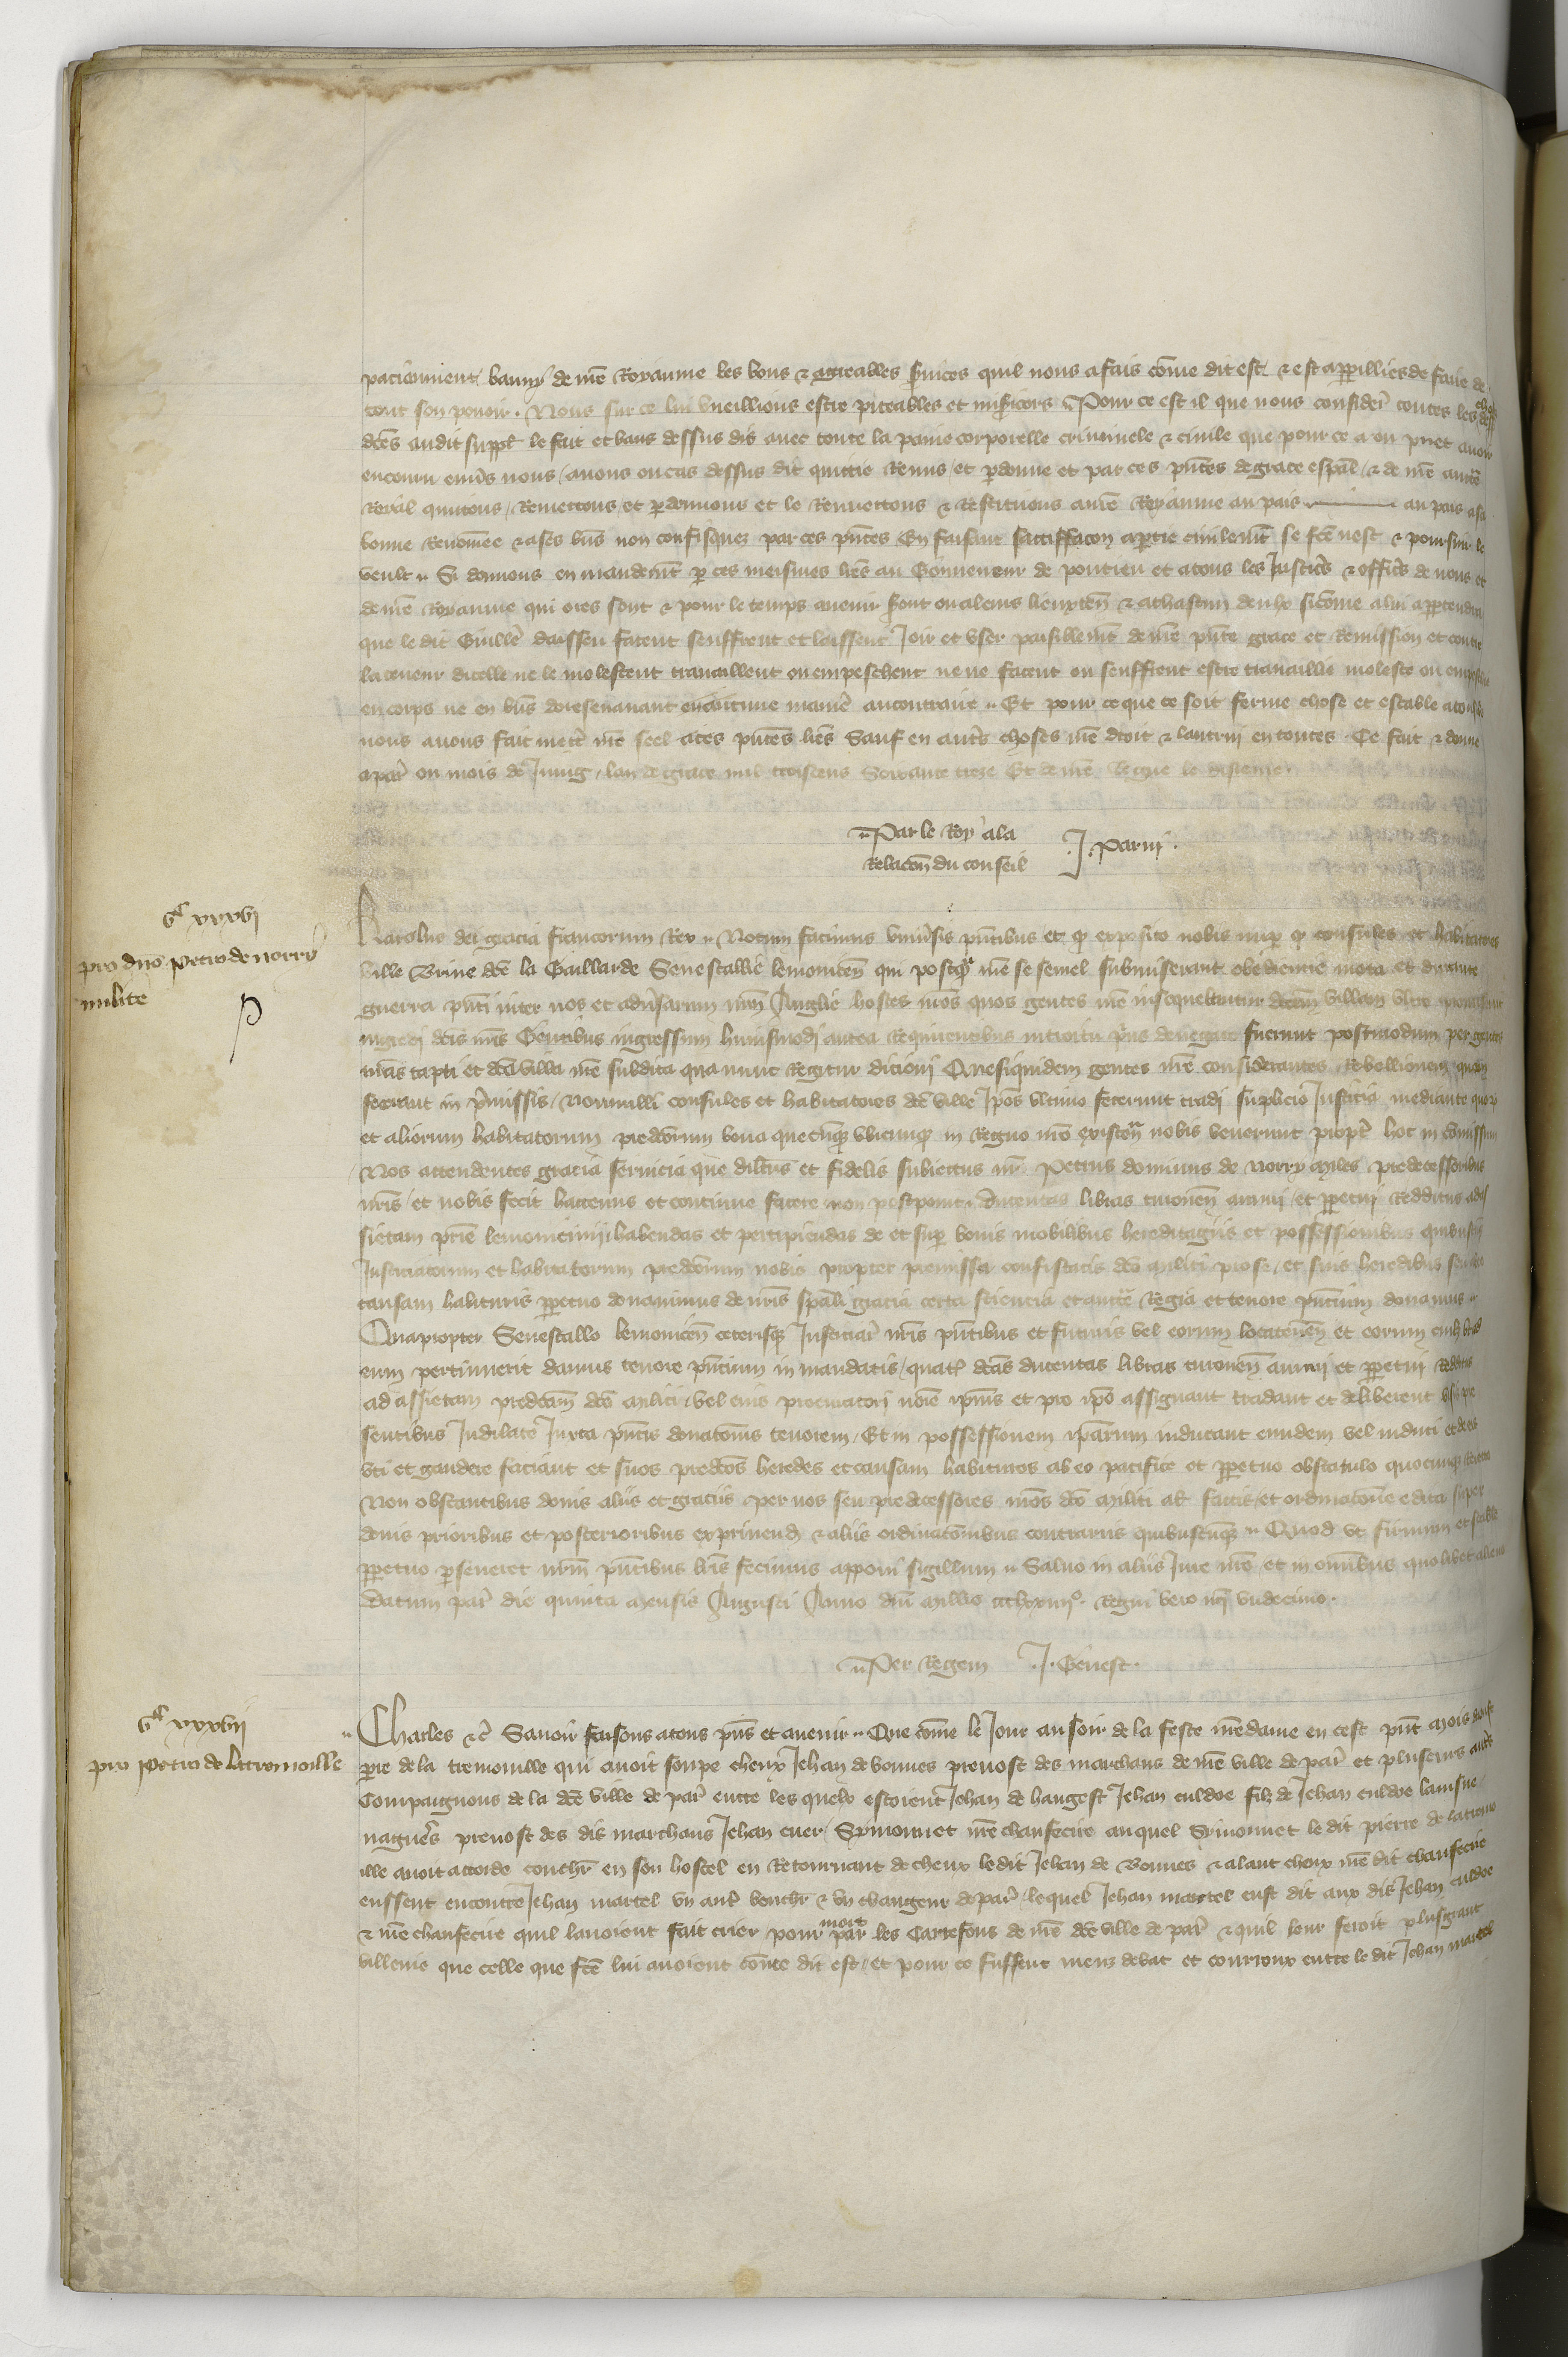 paciemment banny de nre Royaume les bons & agreables svices quil nous a fais come dit est & est appilliés de faire de
tout son pouoir . Nous sur ce lui vueillions estre piteables et misicors Pour ce est il que nous considei toutes les choses dess
dces audit suppt le fait et bans dessus dis auec toute la paine corporelle criminele & ciuile que pour ce a ou puet auoir
encouru enus nous / auons ou cas dessus dit quittie Remis / et pdonne et par ces pntes de grace espal / & de nre aucte
Royal quittons / Remettons et pdonnons et le Remettons & Restituons a nre Royaume au pais au pais a sa
bonne Renomee & a ses bns non confisquez par ces pntes En faisant sattiffacon aptie ciuilemt se fce nest & poursuir le
veult Si donnons en mandemt p ces meismes lres au Gouuerneur de pontieu et a tous les Justicrs & officrs de nous et
de nre Royaume qui ores sont & pour le temps auenir sont ou a leurs lieuxten & a chascun deulx sicome a lui appendra
que le dit Guille daisseu facent seuffrent et laissent Joir et vser paisiblemt de nre pnte grace et Remission et contre
la teneur dicelle ne le molestent trauaillent ou empeschent ne ne facent ou seuffrent estre trauaillie moleste ou empeschie
en corps ne en bns doresenauant en aucune manie au contraire Et pour ce que ce soit ferme chose et estable a tousiours
nous auons fait mettre nre seel a ces pntes lres Sauf en autrs choses nre droit & lautrui en toutes Ce fait & donne
a par ou mois de Juing lan de grace mil troiscens Soixante treze Et de nre Regne le disieme
Par le Roy a la
Relacon du conseil J. parui .
vc xxxvj
pro dno petro de norry
milite
Karolus dei gracia francorum Rex Notum facimus vniusis pntibus et exposito nobis nup consules et habitatores
ville Briue dce la Gaillarde Senescallie lemouicen qui postq nre se semel submiserant obedientie mota et durante
guerra pnti inter nos et adusarium nrm Anglie hostes nros quos gentes nre insequebantur dcam villam
ingredi dcis nris Gentibus ingressum huiusmodi antea Requirentibus introitu pus denegato fuerunt postmodum per gentes
nras capti et dca villa nre subdita qua nunc Regitur dicioni Quesiquidem gentes nre considerantes Rebellionem quam
fecerant in pmissis / Nonnulli consules et habitatores dce ville Ipos vltimo fecerunt tradi suplicio Justicia mediante quorp
et aliorum habitatorum predcorum bona quecunq vbicunq in Regno nro existen nobis venerunt propt hoc in comissum
Nos attendentes gracia seruicia que dilcus et fidelis subiectus nr Petrus dominus de Norry Miles predecessoribus
nris / et nobis fecit hactenus et continue facere non postponit . ducentas libras turonen annui / et ppetui Redditus ad as
sietam ptie lemouicinij habendas et percipiendas de et sup bonis mobilibus hereditagiis et possessionibus quibuscq
Justiciatorum et habitatorum predcorum nobis propter premissa confiscatis dco Militi pro se / et suis heredibus seu ab eo
causam habituris ppetuo donauimus de nris spali gracia certa sciencia et aucte Regia et tenore pntium donamus
Quapropter Senescallo lemouicen ceterisq Justiciar nris pntibus et futuris vel eorum locatenen et eorum cuilz
eum pertinuerit damus tenore pntium in mandatis / quat dcas ducentas libras turonen annui et ppetui Redditus
ad assietam predcam dco Militi / vel eius procuratori noie ipius et pro ipo assignant tradant et deliberent
sentibus Indilate Iuxta pntis donatonis tenorem / Et in possessionem iparum inducant eundem vel induci et de eis
vti et gaudere faciant et suos predcos heredes et causam habituros ab eo pacifice et ppetuo obstaculo quocunq
Non obstantibus donis aliis et graciis per nos seu predecessores nros dco Militi al factis / et ordinacone edita super
donis prioribus et posterioribus exprimend & aliis ordinatonibus contrariis quibuscunq Quod vt firmum et stabile
ppetuo pseueret nrm pntibus lris fecimus apponi sigillum Saluo in aliis Iure nro / et in omibus quolibet alieno
Datum par die quinta mensis Augusti Anno dni Millo ccclxxiiijo . Regni vero nri vndecimo .
Per Regem J. Genest .
vc xxxvij
pro petro de latremoille
Charles &c Sauoir faisons a tous pns et auenir Que come le Jour au soir de la feste nredame en cest pnt mois daoust
pre de la tremouille qui auoit soupe cheux Jehan de vonnes preuost des marchans de nre ville de par et pluseurs autrs
Compaignons de la dce ville de par entre les quelx estoient Jehan de hangest Jehan culdoe filz de Jehan culdoe lainsne
naguers preuost des dis marchans Jehan euer / Symonnet nre chaufecire auquel Symonnet le dit pierre de latremo
ille auoit accorde couchr en son hostel en Retournant de cheux le dit Jehan de Vonnes & alant cheux nre dit chaufecire
eussent encontre Jehan martel vn aut bouchr & vn changeur de par / lequel Jehan martel eust dit aux dis Jehan culdoe
& nre chaufecire quil lauoient fait crier pour mort par les Carrefours de nre dce ville de par & quil leur feroit plusgrant
villenie que celle que fce lui auoient come dit est / et pour ce fussent meuz debat et courroux entre le dit Jehan martel